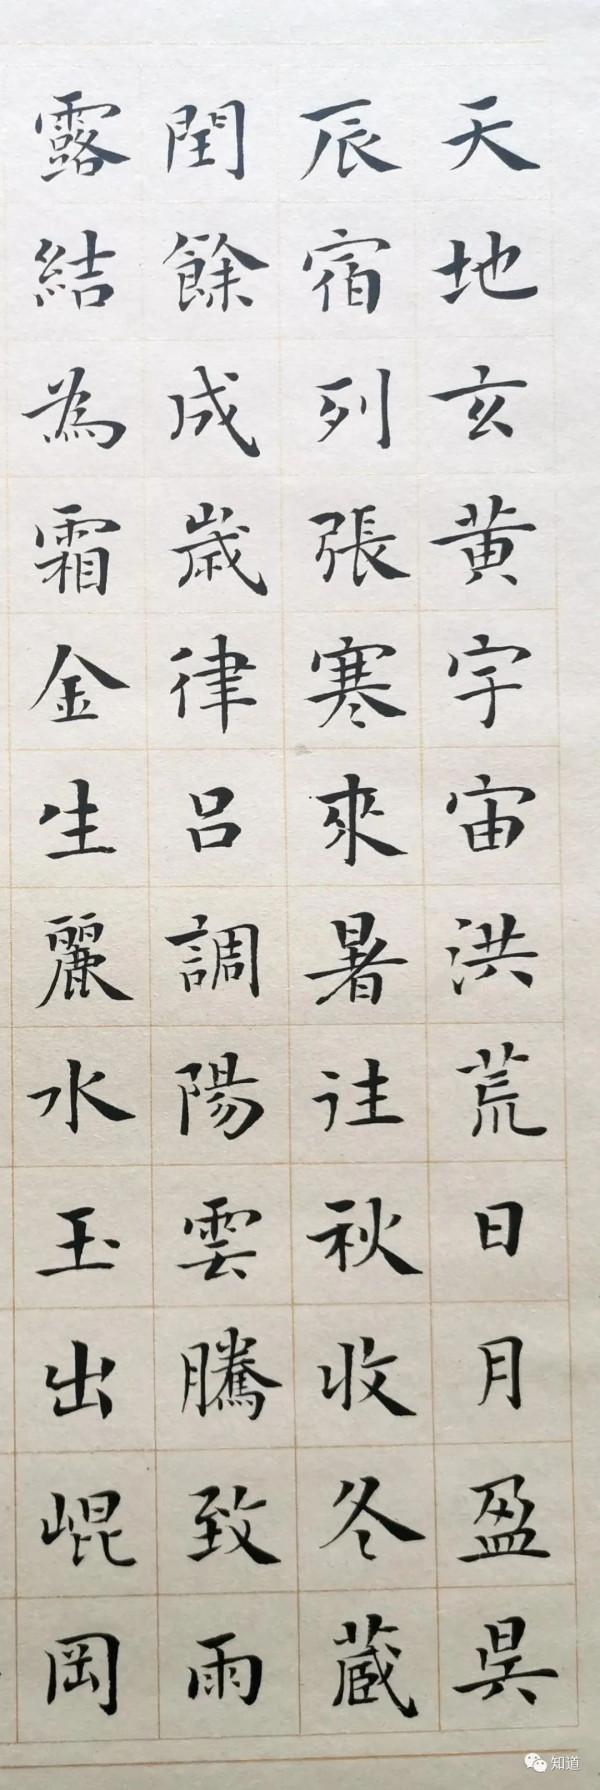 天地玄黃宇宙洪荒日月盈昃
辰宿列張寒來暑往秋收冬蔵
閏餘成歳律呂調陽雲騰致雨
露結為霜金生麗水玉出崐岡
知道